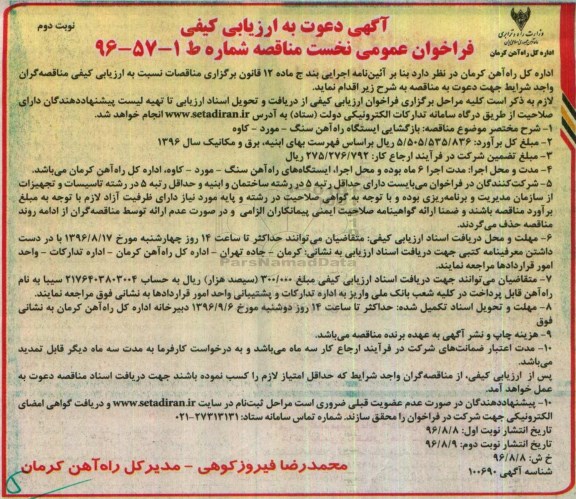 وزارت راه و شهرسازی
اداره کل راه‌آهن کرمان
نوبت دوم
آگهی دعوت به ارزیابی کیفی
فراخوان عمومی نخست مناقصه شماره ط ۱-۵۷-۹۶
اداره کل راه‌آهن کرمان در نظر دارد بنا بر آئین‌نامه اجرایی بند ج ماده ۱۲ قانون برگزاری مناقصات نسبت به ارزیابی کیفی مناقصه‌گران
واجد شرایط جهت دعوت به مناقصه به شرح زیر اقدام نماید.
لازم به ذکر است کلیه مراحل برگزاری فراخوان ارزیابی کیفی از دریافت و تحویل اسناد ارزیابی تا تهیه لیست پیشنهاددهندگان دارای
صلاحیت از طریق درگاه سامانه تدارکات الکترونیکی دولت (ستاد) به آدرس www.setadiran.ir انجام خواهد شد.
۱- شرح مختصر موضوع مناقصه: بازگشایی ایستگاه راه‌آهن سنگ - مورد - کاوه
۲- مبلغ کل برآورد: ۵/۵۰۵/۵۳۵/۸۳۶ ریال براساس فهرست بهای ابنیه، برق و مکانیک سال ۱۳۹۶
۳- مبلغ تضمین شرکت در فرآیند ارجاع کار: ۲۷۵/۲۷۶/۷۹۲ ریال
۴- مدت و محل اجرا: مدت اجرا ۶ ماه بوده و محل اجرا، ایستگاه‌های راه‌آهن سنگ - مورد - کاوه، اداره کل راه‌آهن کرمان می‌باشد.
۵- شرکت‌کنندگان در فراخوان می‌بایست دارای حداقل رتبه ۵ در رشته ساختمان و ابنیه و حداقل رتبه ۵ در رشته تاسیسات و تجهیزات
از سازمان مدیریت و برنامه‌ریزی بوده و با توجه به گواهی صلاحیت در رشته و پایه مورد نیاز دارای ظرفیت آزاد لازم با توجه به مبلغ
برآورد مناقصه باشند و ضمنا ارائه گواهینامه صلاحیت ایمنی پیمانکاران الزامی و در صورت عدم ارائه توسط مناقصه‌گران از ادامه روند
مناقصه حذف می‌گردند.
۶- مهلت و محل دریافت اسناد ارزیابی کیفی: متقاضیان می‌توانند حداکثر تا ساعت ۱۴ روز چهارشنبه مورخ ۱۳۹۶/۸/۱۷ با در دست
داشتن معرفینامه کتبی جهت دریافت اسناد ارزیابی به نشانی: کرمان - جاده تهران - اداره کل راه‌آهن کرمان - اداره تدارکات - واحد
امور قراردادها مراجعه نمایند.
۷- متقاضیان می‌توانند جهت دریافت اسناد ارزیابی کیفی مبلغ ۳۰۰/۰۰۰ (سیصد هزار) ریال به حساب ۲۱۷۶۴۰۳۸۰۳۰۰۴ سیبا به نام
راه‌آهن قابل پرداخت در کلیه شعب بانک ملی واریز به اداره تدارکات و پشتیبانی واحد امور قراردادها به نشانی فوق مراجعه نمایند.
۸- مهلت و تحویل اسناد تکمیل شده: حداکثر تا ساعت ۱۴ روز دوشنبه مورخ ۱۳۹۶/۹/۶ دبیرخانه اداره کل راه‌آهن کرمان به نشانی
فوق
۹- هزینه چاپ و نشر آگهی به عهده برنده مناقصه می‌باشد.
۱۰- مدت اعتبار ضمانت‌های شرکت در فرآیند ارجاع کار سه ماه می‌باشد و به درخواست کارفرما به مدت سه ماه دیگر قابل تمدید
می‌باشد.
پس از ارزیابی کیفی، از مناقصه‌گران واجد شرایط که حداقل امتیاز لازم را کسب نموده باشند جهت دریافت اسناد مناقصه دعوت به
عمل خواهد آمد.
۱۰- پیشنهاددهندگان در صورت عدم عضویت قبلی ضروری است مراحل ثبت‌نام در سایت www.setadiran.ir و دریافت گواهی امضای
الکترونیکی جهت شرکت در فراخوان را محقق سازند. شماره تماس سامانه ستاد: ۲۷۳۱۳۱۳۱-۰۲۱
تاریخ انتشار نوبت اول: ۹۶/۸/۸
تاریخ انتشار نوبت دوم: ۹۶/۸/۹
خ ش: ۹۶/۸/۸
شناسه آگهی ۱۰۰۶۹۰
محمدرضا فیروزکوهی - مدیرکل راه‌آهن کرمان
ParsNamadData